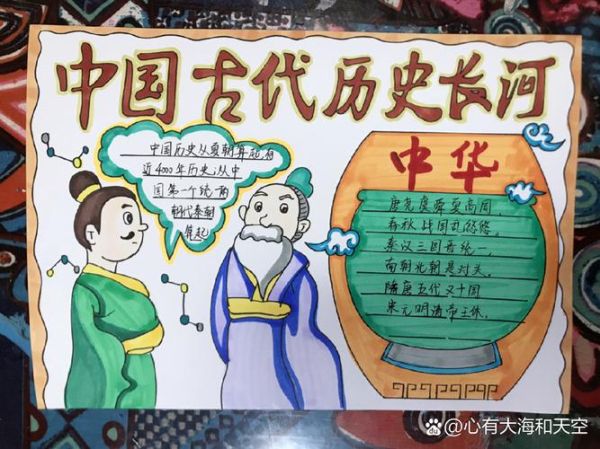 中国古代历史长河
中国历史从夏朝算起有
近4000年历史;从中
国第一个统一的
朝代秦朝
算起
中华
唐尧虞舜夏商周,
春秋战国乱悠悠,
秦汉三国晋统一,
南朝北朝是对头,
隋唐五代又十国
宋元明清帝王休.
@心有大海和天空